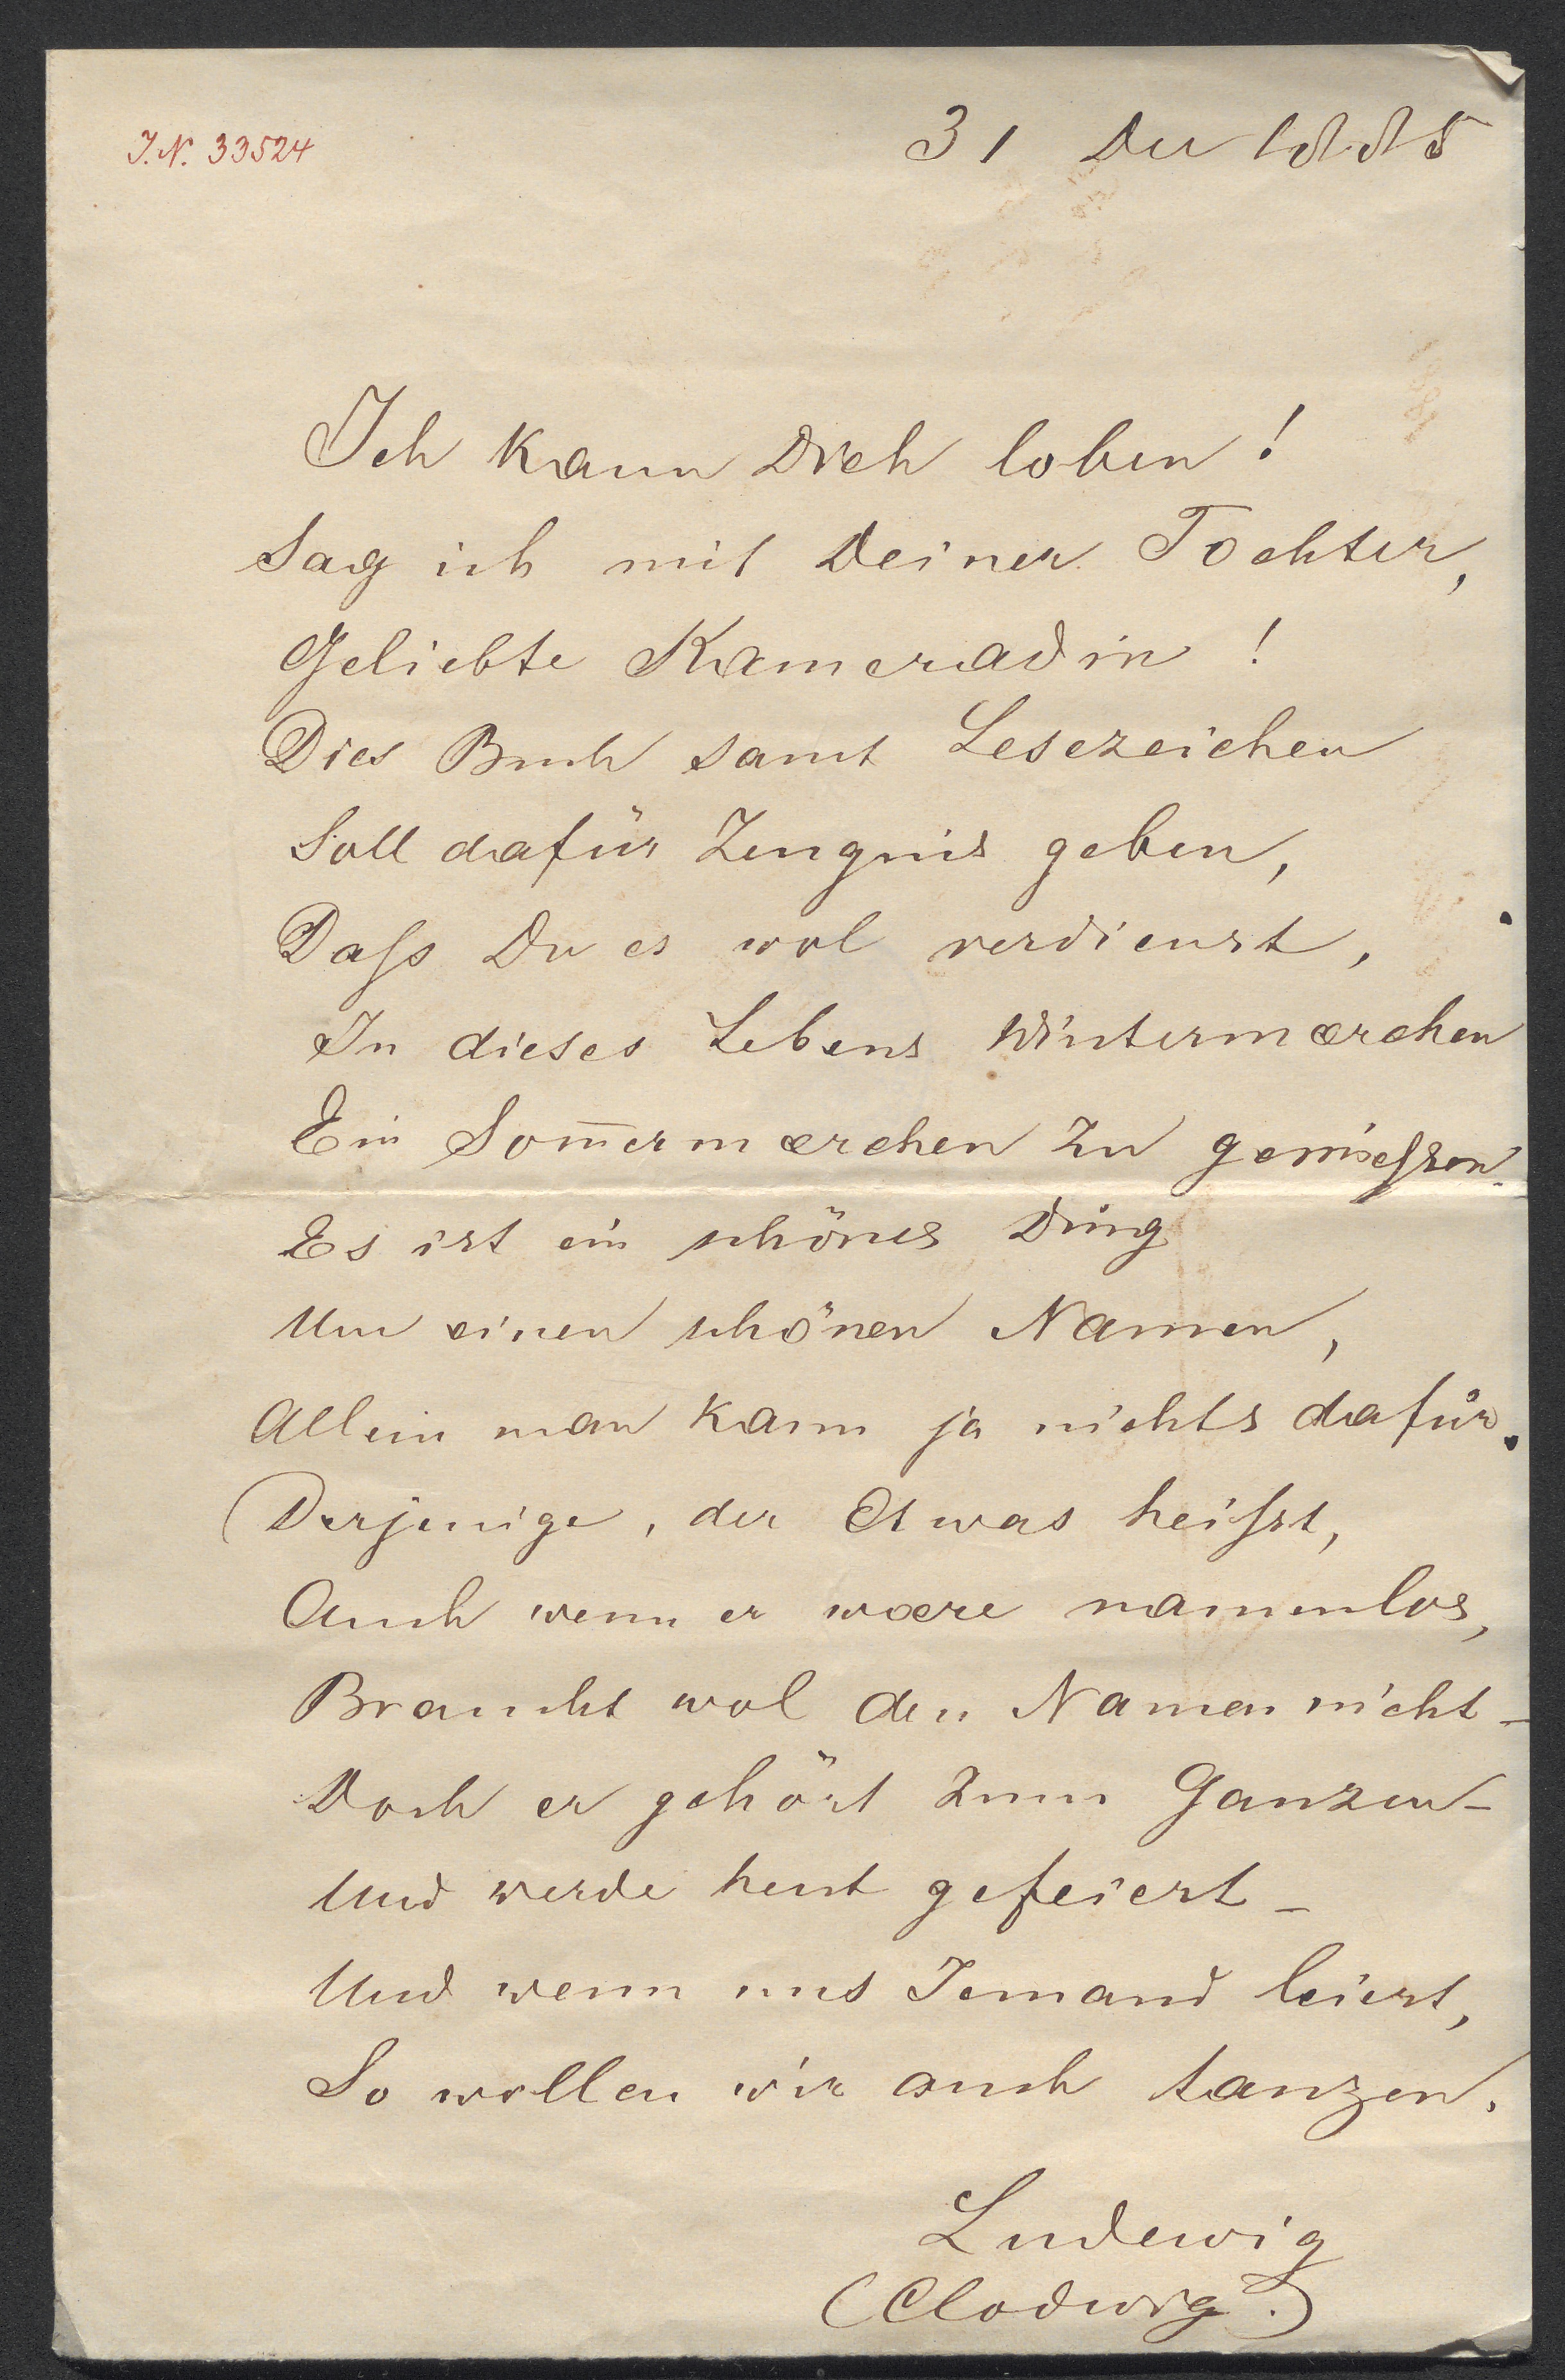 I.N. 33524
31 Dec 1885
Ich kann Dich loben!
Sag ich mit Deiner Tochter,
Geliebte Kameradin!
Dies Buch samt Lesezeichen
Soll dafür Zeugnis geben,
Daſs Du es wol verdienst,
In dieses Lebens Wintermærchen
Ein Som̅ermærchen zu genieſsen.
Es ist ein schönes Ding
Um einen schönen Namen,
Allein man kann ja nichts dafür.
(Derjenige, der Etwas heiſst,
Auch wenn er wære namenlos,
Braucht wol den Namen nicht –
Doch er gehört zum Ganzen –
Und werde heut gefeiert –
Und wenn uns Jemand leiert,
So wollen wir auch tanzen.
Ludewig
(Clodwig.)